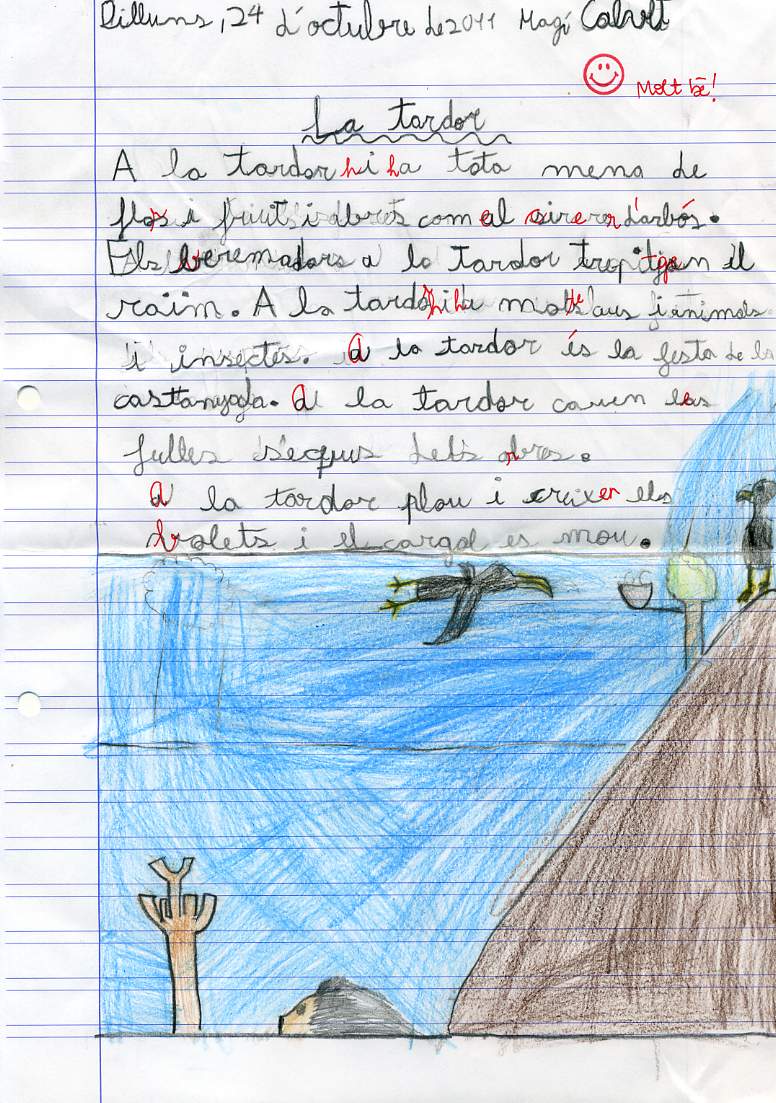 Dilluns, 24 d'octubre de 2011 Magí Calvet
Molt bé!
La tardor
A la tardor hi ha tota mena de
flos i fruits i abres com el cirerer d'arbós.
Els veremadors a la tardor trepitgen el
raïm. A la tardor hi ha moltes aus i animals
i insectes. A la tardor és la festa de la
castanyada. A la tardor cauen les
fulles seques dels abres.
A la tardor plou i creixen els
bolets i el cargol es mou.